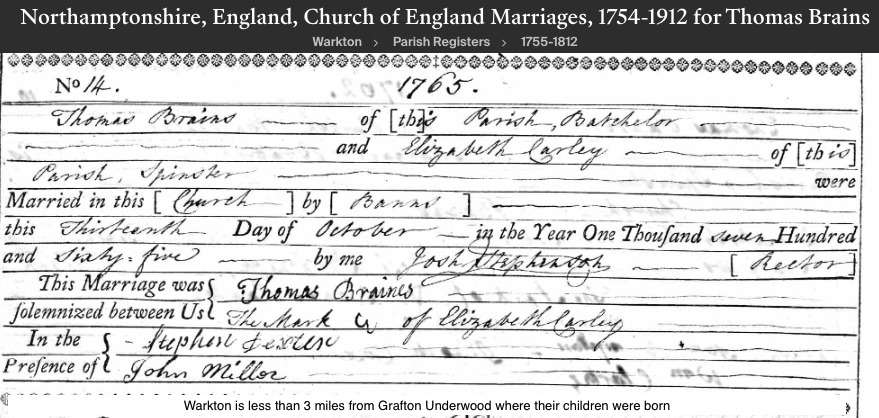 Northamptonshire, England, Church of England Marriages, 1754-1912 for Thomas Brains
Warkton > Parish Registers > 1755-1812
No 14. 1765.
Thomas Brains of [this] Parish, Batchelor
and Elizabeth Carley of [this]
Parish, Spinster were
Married in this [Church] by [Banns]
this Thirteenth Day of October in the Year One Thouſand seven Hundred
and Sixty-five by me Josh Stephenson [Rector]
This Marriage was
ſolemnized between Us
Thomas Braines
The Mark of Elizabeth Carley
In the
Preſence of
Stephen
John Miller
Warkton is less than 3 miles from Grafton Underwood where their children were born